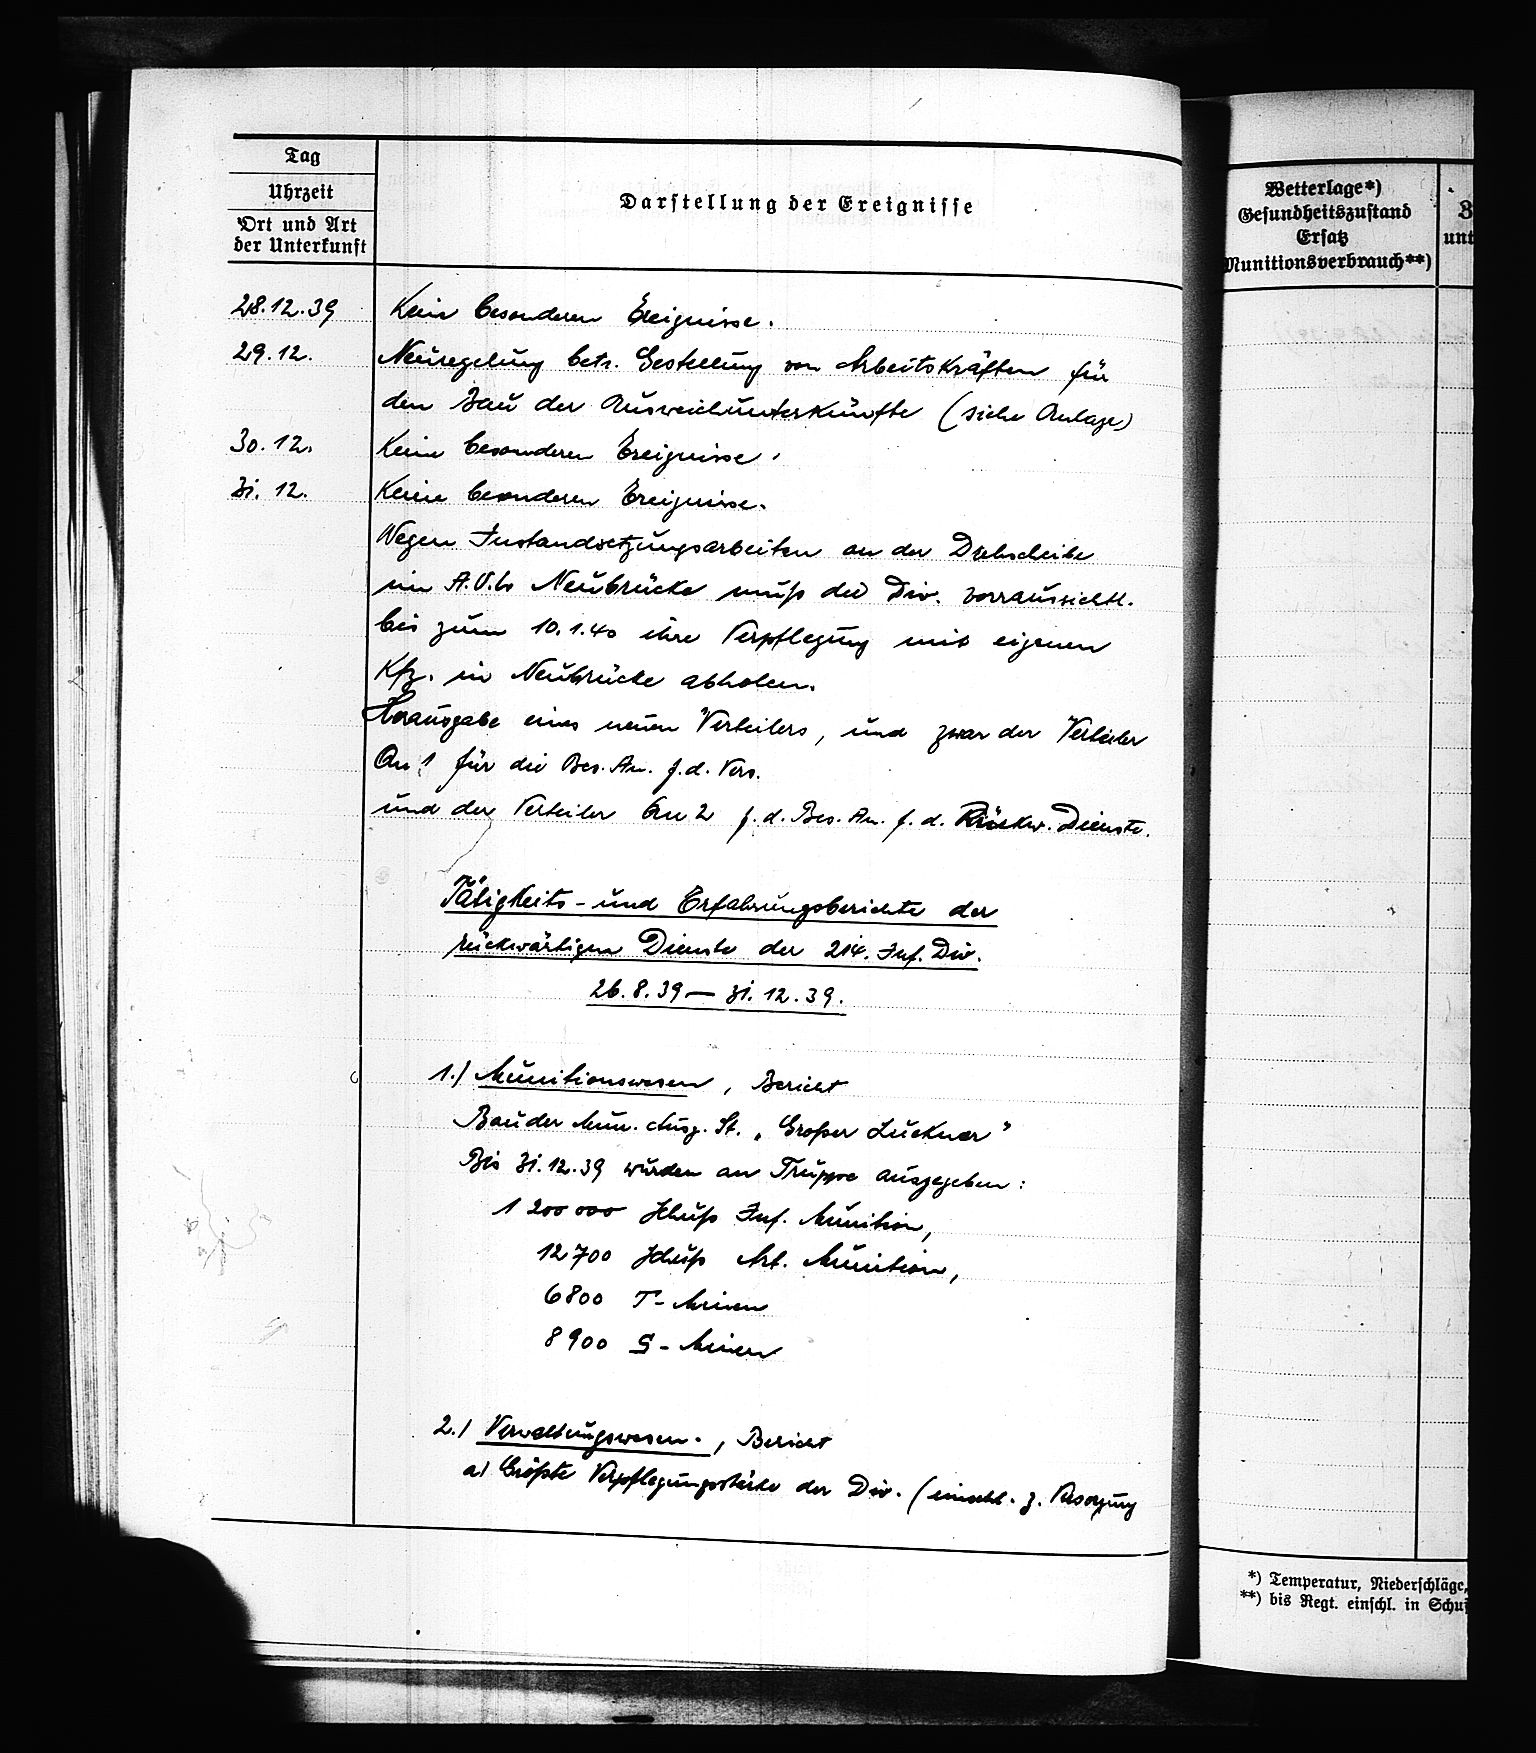 Tag
Uhrzeit
Ort und Art
der Unterkunft
Darstellung der Ereignisse
28.12.39 Keine besonderen Ereignisse.
29.12. Neuregelung betr. Gestellung von Arbeitskräften für
den Bau der Ausweichunterkünfte (siehe Anlage)
30.12. Keine besonderen Ereignisse.
31.12. Keine besonderen Ereignisse.
Wegen Instandsetzungsarbeiten an der Drehscheibe
im A.V.L. Neubrücke muß die Div. vorraussichtl.
bis zum 10.1.40 ihre Verpflegung mit eigenen
Kfz. in Neubrücke abholen.
Herausgabe eines neuen Verteilers, und zwar der Verteiler
An 1 für die Bes. An. f. d. Vers.
und der Verteiler An 2 f. d. Bes. An. f. d. Rückw. Dienste.
Tätigkeits- und Erfahrungsberichte der
rückwärtigen Dienste der 214. Inf. Div.
26.8.39 — 31.12.39.
1.) Munitionswesen, Bericht
Bau der Mun. Ausg. St. „Großer Luckner"
Bis 31.12.39 wurden an Truppe ausgegeben:
1 200 000 Schuß Inf. Munition,
12 700 Schuß Art. Munition,
6800 T-Minen
8900 S-Minen
2.) Verwaltungswesen., Bericht
a) Größte Verpflegungsstärke der Div. (einschl. z. Versorgung
Wetterlage*)
Gesundheitszustand
Ersatz
Munitionsverbrauch**)
unt
*) Temperatur, Niederschläge,
**) bis Regt. einschl. in Schuß